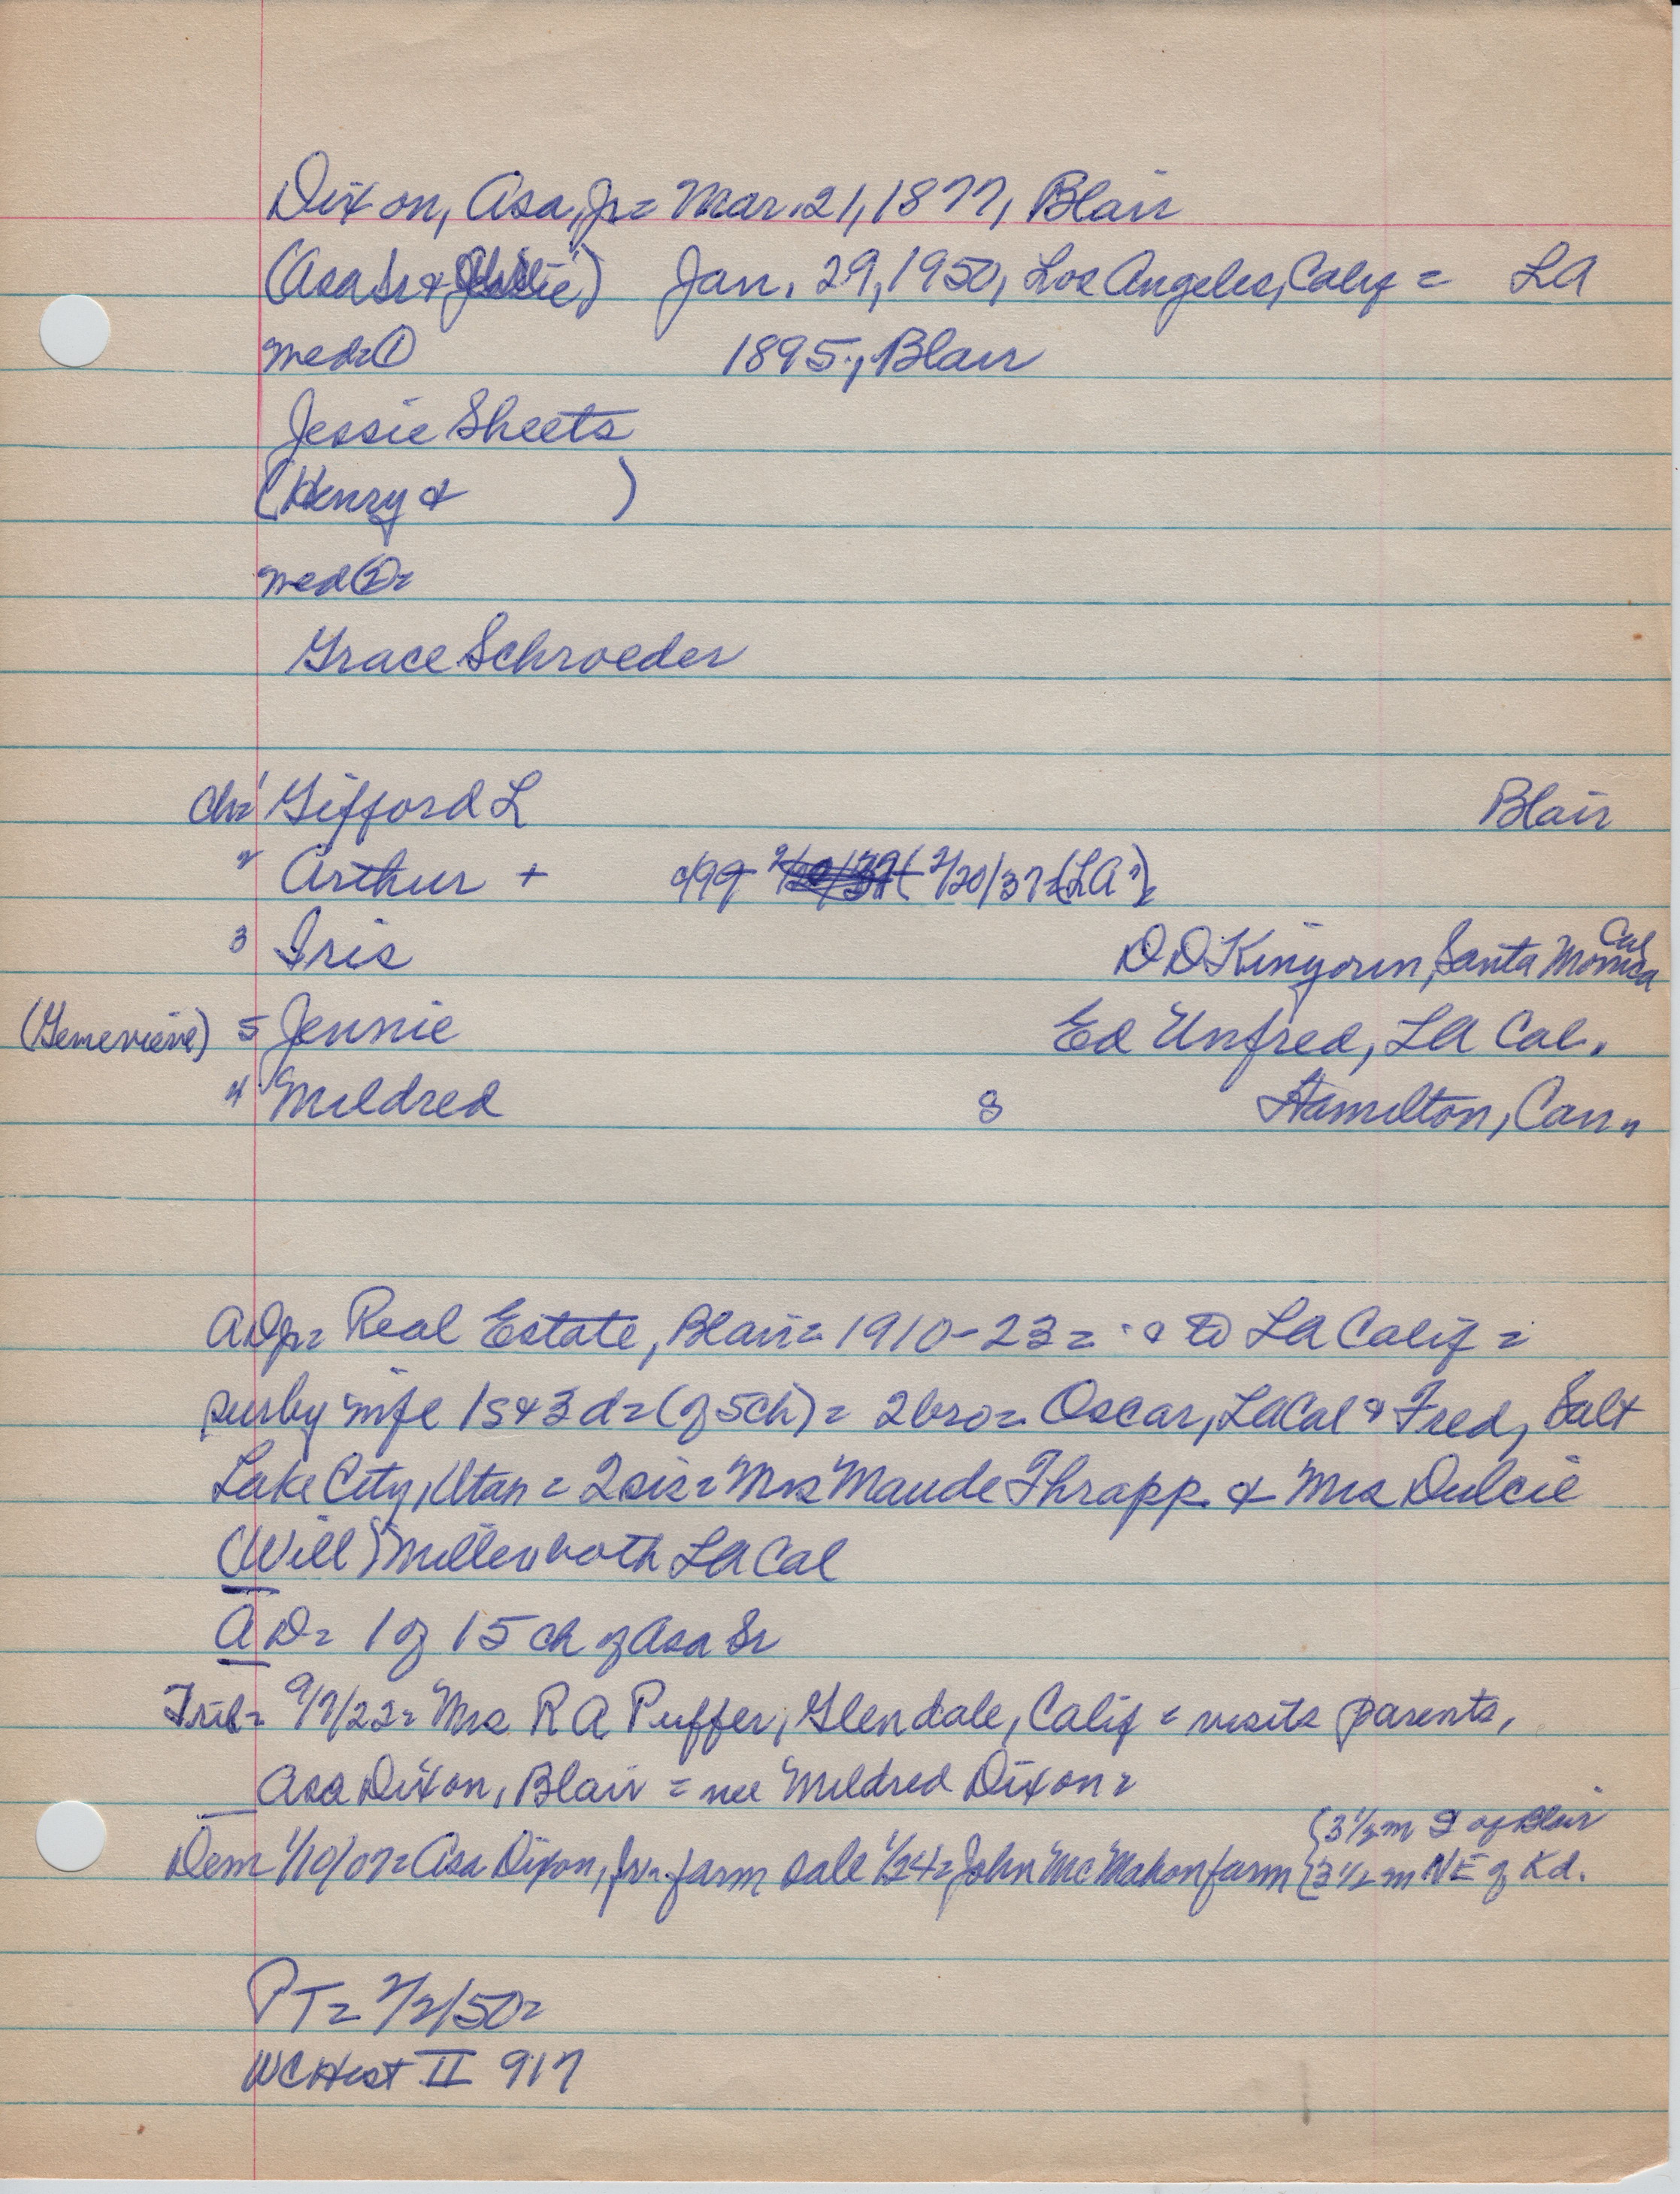 Dixon, Asa, Jr= Mar. 21, 1877, Blair
(Asa Sr & ) Jan. 29, 1950, Los Angeles, Calif = LA
med= ① 1895, Blair
Jessie Sheets
(Henry & )
med ②=
Grace Schroeder
Ch= 1 Gifford L Blair
2 Arthur + 2/20/37=(LA)=
3 Iris D D Kingorn, Santa Monica Cal
(Genevieve) 5 Jennie Ed Unfred, LA Cal.
4 Mildred 8 Hamilton, Can.
ADJr= Real Estate, Blair= 1910-23= & to LA Calif =
sur by wife 1s & 3d= (of 5ch)= 2bro= Oscar, LA Cal & Fred, Salt
Lake City, Utah = 2sis= Mrs Maude Thrapp & Mrs Dulcie
(Will) Miller both LA Cal
AD= 1 of 15 ch of Asa Sr
Trib= 9/7/22= Mrs R A Puffer, Glendale, Calif = visits parents,
Asa Dixon, Blair = nee Mildred Dixon=
Dem 1/10/07= Asa Dixon, Jr= farm sale 1/24= John McMahon farm {3 1/2 m of Blair
{3 1/2 m NE of Kd.
PT= 2/2/50=
WCHist II 917